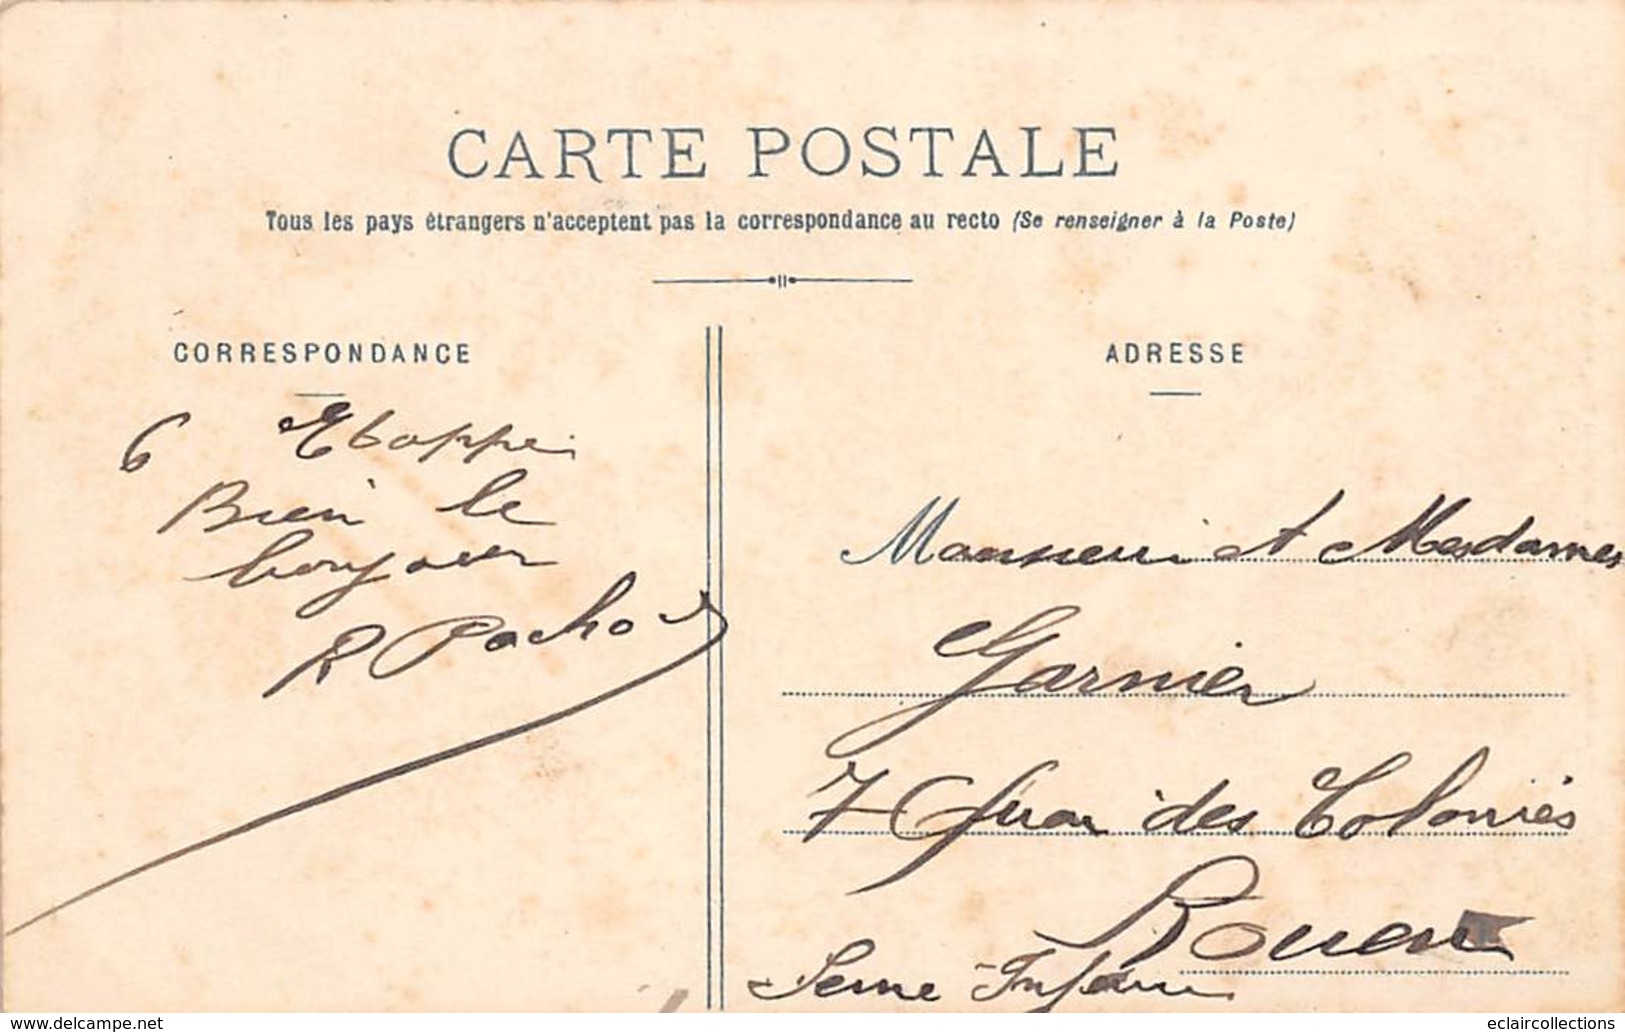 CARTE POSTALE
Tous les pays étrangers n'acceptent pas la correspondance au recto (Se renseigner à la Poste)
CORRESPONDANCE
6 Etappe
Bien le
bonjour
R Pacho
ADRESSE
Monsieur et Mesdames
Garnier
7 Quai des Colonies
Rouen
Seine Infre
www.delcampe.net
eclaircollections